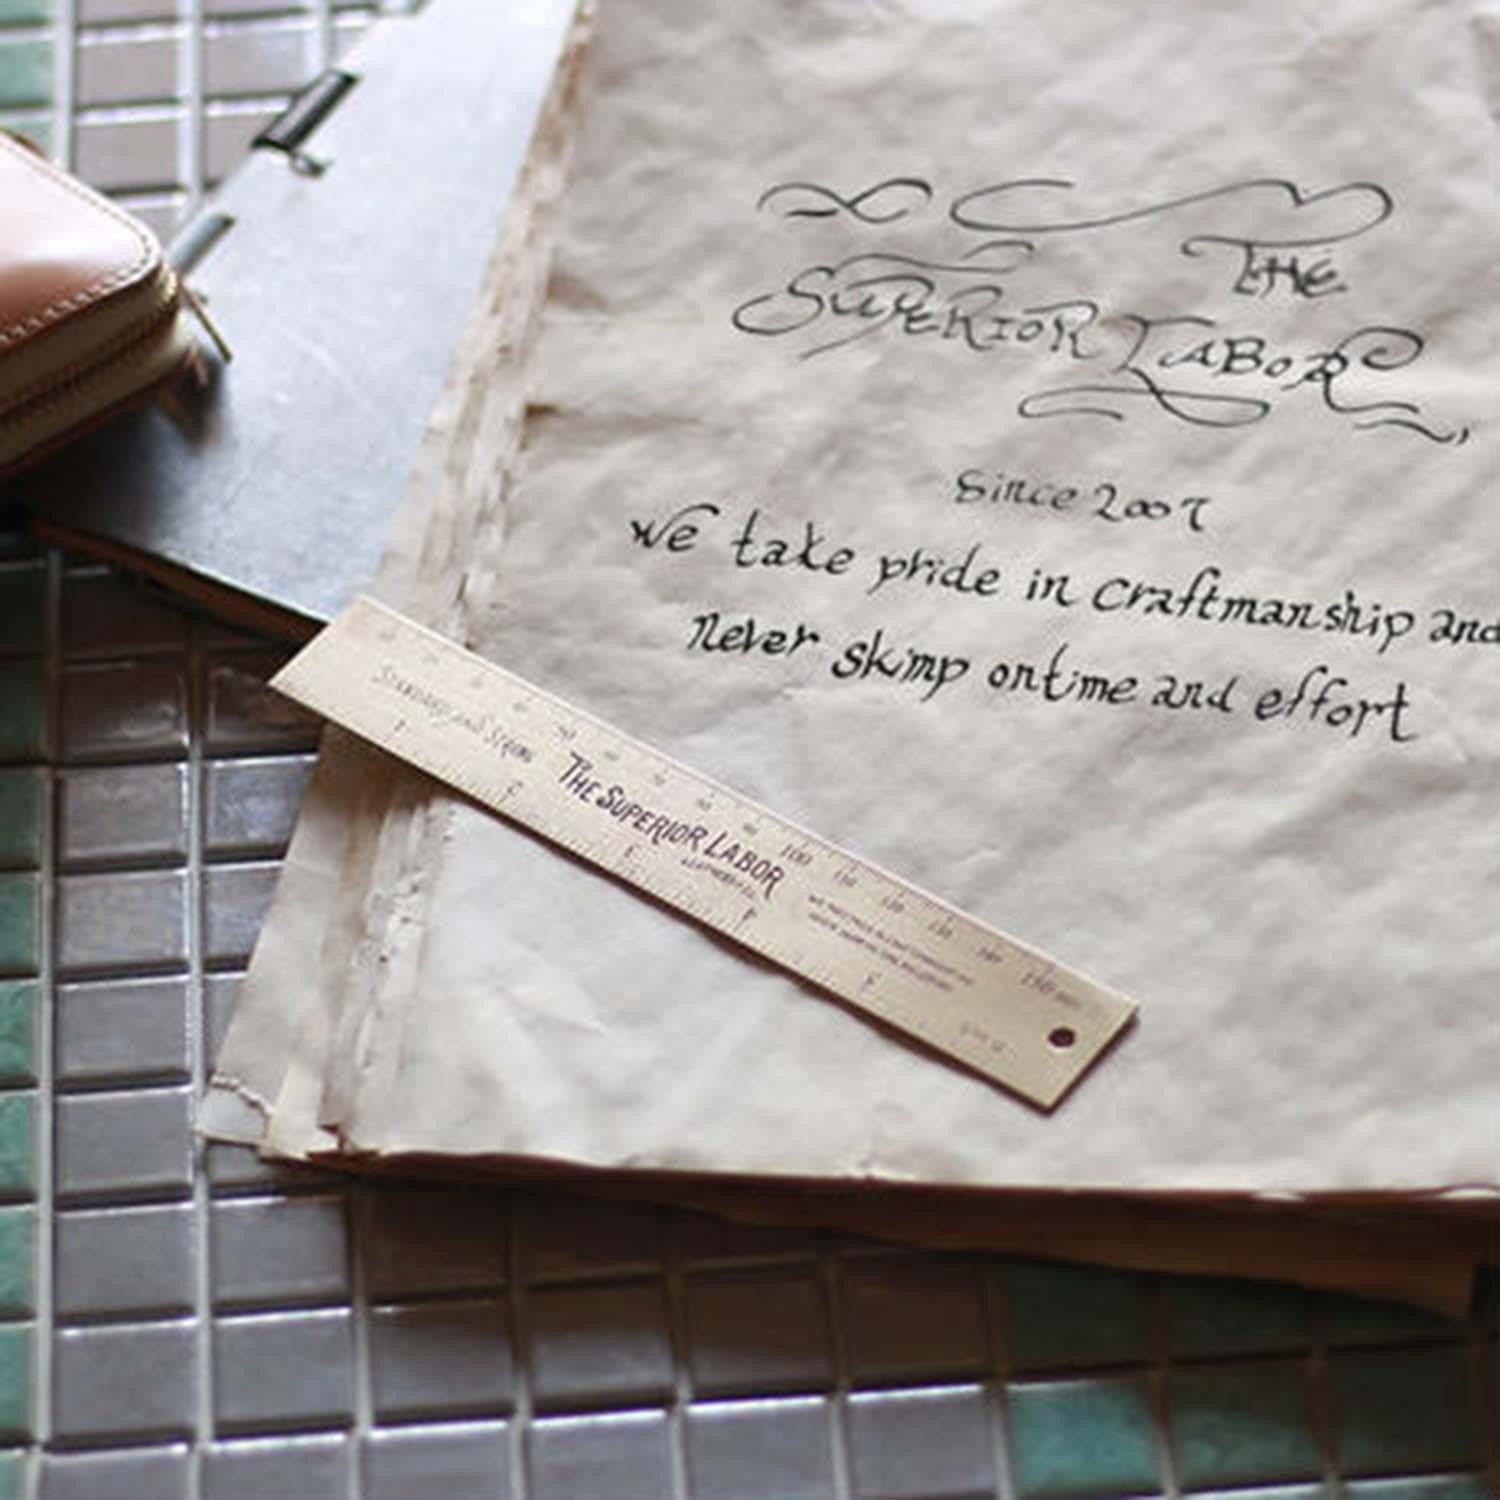 THE
SUPERIOR LABOR
Since 2007
we take pride in craftmanship and
never skimp on time and effort
STANDARD AND STRONG
THE SUPERIOR LABOR
100
110
120
130
140
150